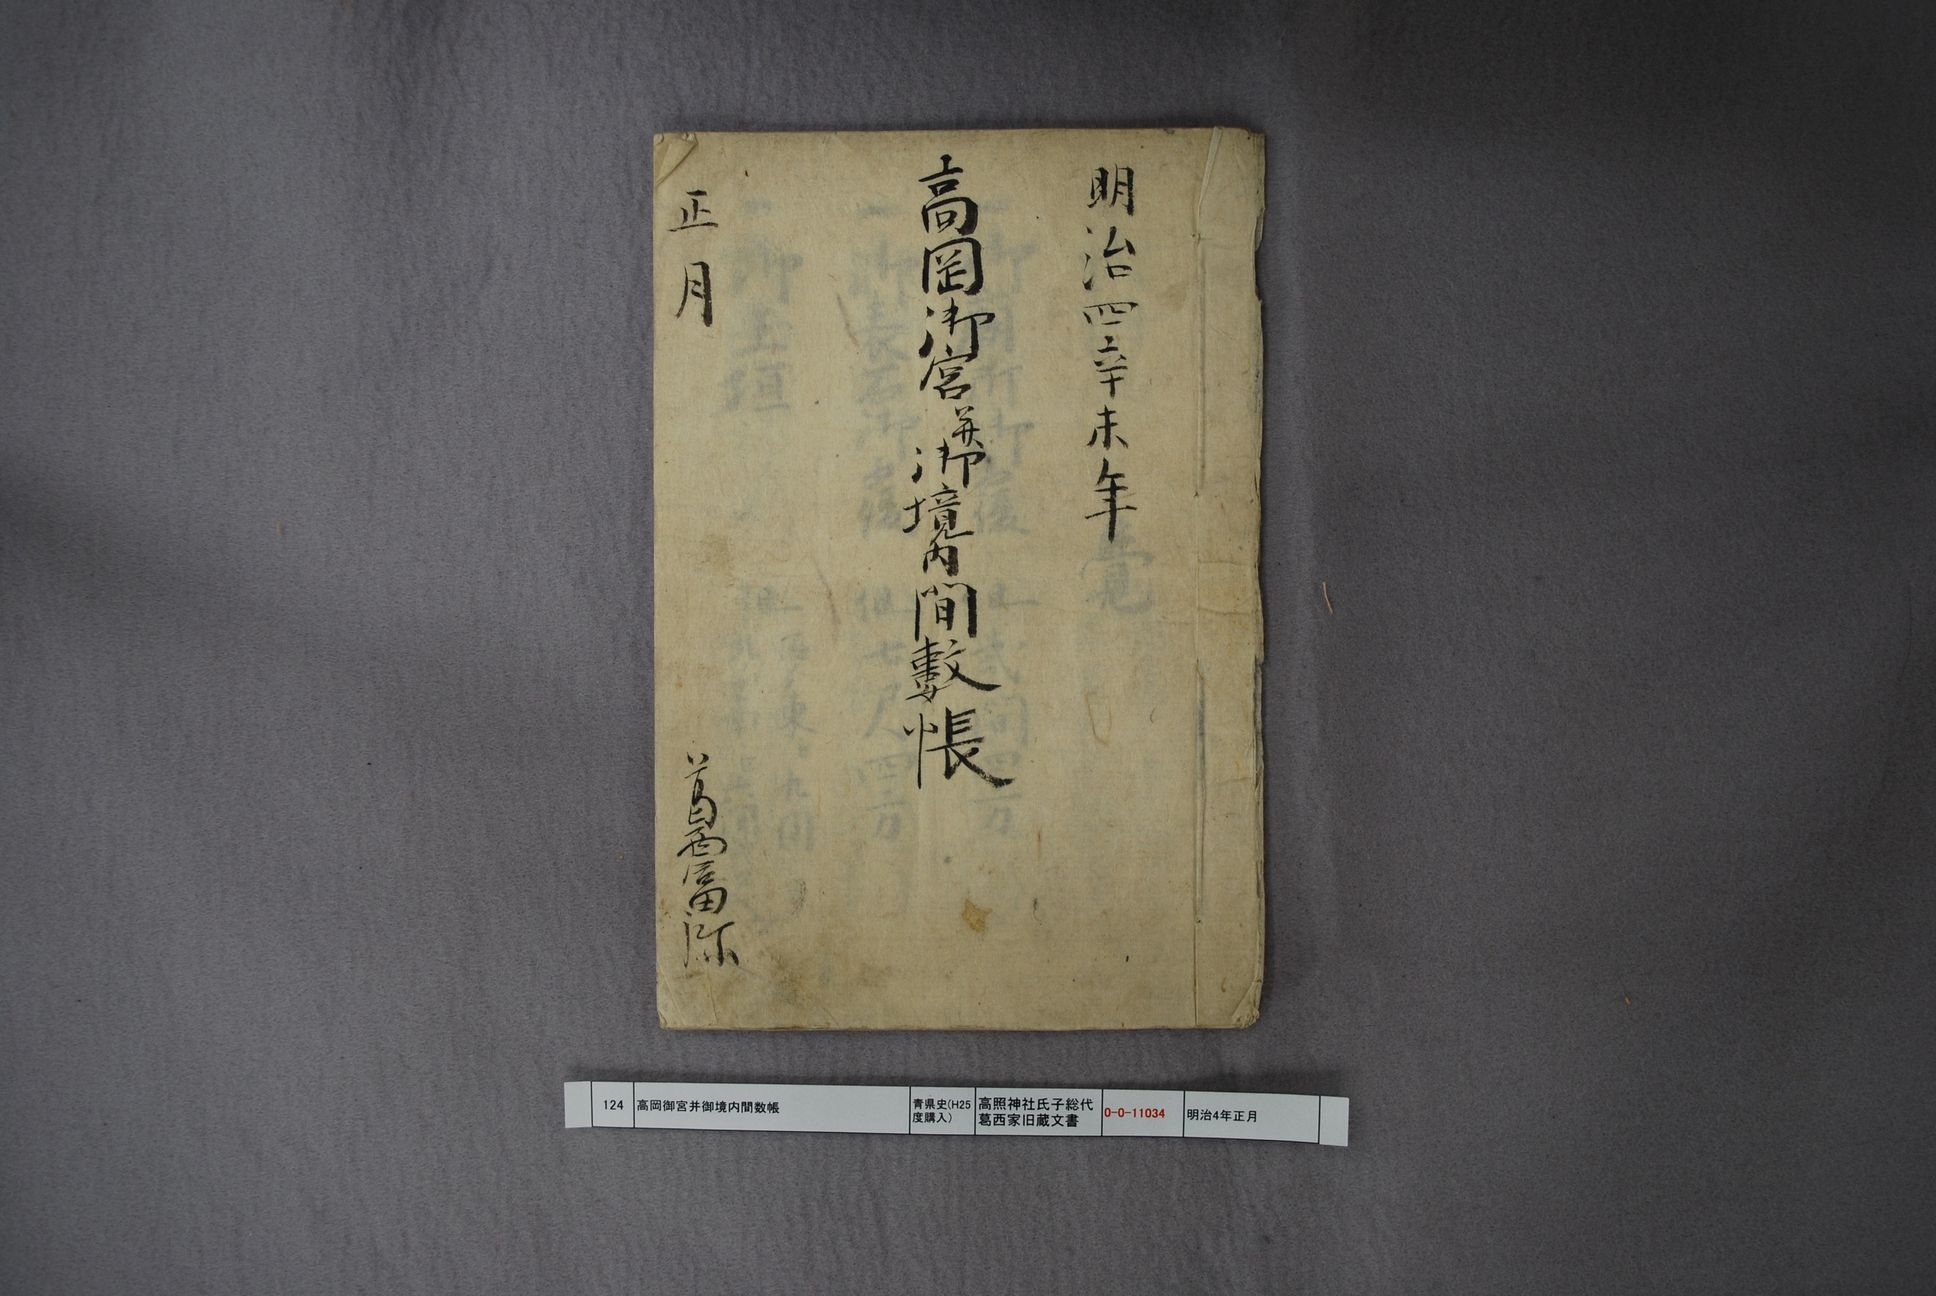 明治四辛未年
高岡御宮并御境内間數帳
正月
葛西富弥
124 高岡御宮并御境内間数帳 青県史(H25度購入) 高照神社氏子総代葛西家旧蔵文書 0-0-11034 明治4年正月